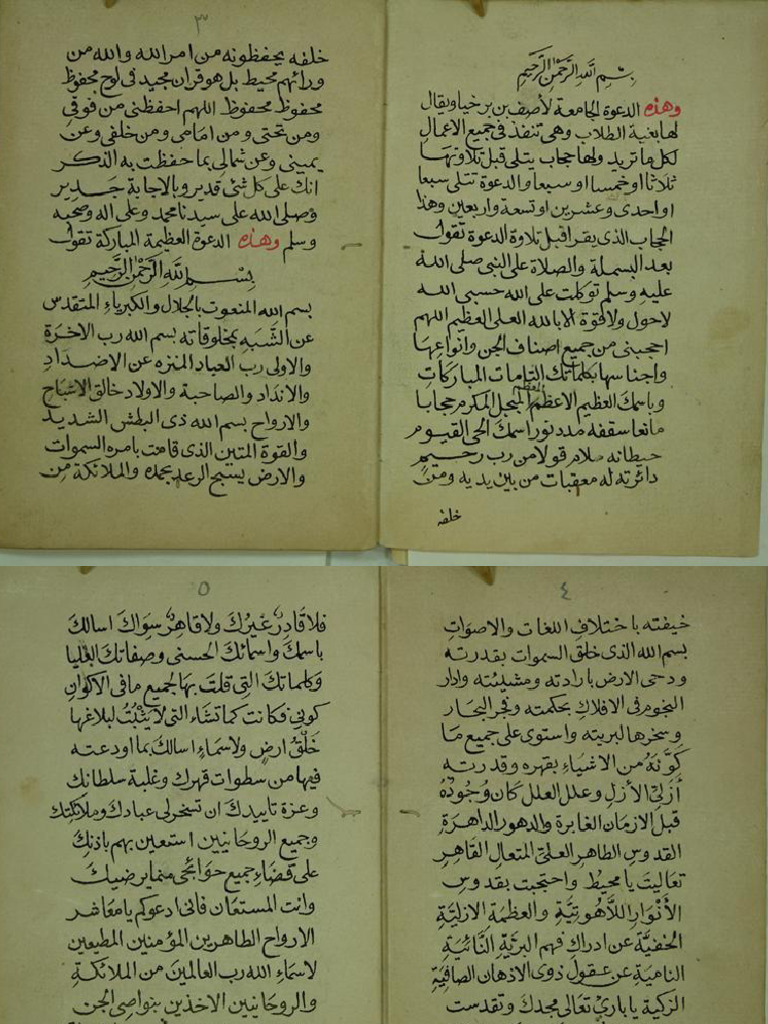 بسم الله الرحمن الرحيم
وهذه الدعوة الجامعة لأصف بن برخيا ويقال
لها بغية الطلاب وهى تنفذ فى جميع الاعمال
لكل ما تريد ولها حجاب يتلى قبل تلاوتها
ثلاثا او خمسا او سبعا والدعوة تتلى سبعا
او احدى وعشرين او تسعة واربعين وهذا
الحجاب الذى يقرا قبل تلاوة الدعوة تقول
بعد البسملة والصلاة على النبى صلى الله
عليه وسلم توكلت على الله حسبى الله
لاحول ولاقوة الا بالله العلى العظيم اللهم
احجبنى من جميع اصناف الجن وانواعها
واجناسها بكلماتك التامات المباركات
وباسمك العظيم الاعظم المبجل المكرم حجابا
مانعا سقفه مدد نور اسمك الحى القيوم
حيطانه سلام قولا من رب رحيم
دائرته له معقبات من بين يديه ومن
خلفه
٣
خلفه يحفظونه من امر الله والله من
ورائهم محيط بل هو قران مجيد فى لوح محفوظ
محفوظ محفوظ اللهم احفظنى من فوقى
ومن تحتى ومن امامى ومن خلفى وعن
يمينى وعن شمالى بما حفظت به الذكر
انك على كل شئ قدير وبالاجابة جدير
وصلى الله على سيدنا محمد وعلى اله وصحبه
وسلم وهذه الدعوة العظيمة المباركة تقول
بسم الله الرحمن الرحيم
بسم الله المنعوت بالجلال والكبرياء المتقدس
عن الشبه بمخلوقاته بسم الله رب الاخرة
والاولى رب العباد المنزه عن الاضداد
والانداد والصاحبة والاولاد خالق الاشباح
والارواح بسم الله ذى البطش الشديد
والقوة المتين الذى قامت بامره السموات
والارض يسبح الرعد بحمده والملائكة من
٤
خيفته باختلاف اللغات والاصوات
بسم الله الذى خلق السموات بقدرته
ودحى الارض بارادته ومشيئته وادار
النجوم فى الافلاك بحكمته وفجر البحار
وسخرها لبريته واستوى على جميع ما
كَوَّنَهُ من الاشياء بقهره وقدرته
أزلى الأزل وعلل العلل كان وُجُودُهُ
قبل الازمان الغابرة والدهور الداهرة
القدوس الطاهر العلىّ المتعال القاهر
تعاليت يا محيط واحتجبت بقدوس
الأنوار اللاهوتيَّة والعظمة الازليَّة
الخفيَّة عن ادراك فهم البريَّة
النامية عن عقول ذوى الاذهان الصافيَّة
الزكية يا بارئ تعالى مجدك وتقدست
٥
فلا قادر غيرك ولا قاهر سواك اسالك
باسمك واسمائك الحسنى وصفاتك العليا
وكلماتك التى قلت بها لجميع ما فى الاكوان
كونى فكانت كما تشاء التى لا يثبت لبلاغها
خلق ارض ولا سماء اسالك بما اودعته
فيها من سطوات قهرك وغلبة سلطانك
وعزة تاييدك ان تسخر لى عبادك وملائكتك
وجميع الروحانيين استعين بهم باذنك
على قضاء جميع حوائجى مما يرضيك
وانت المستعان فانى ادعوكم يا معاشر
الارواح الطاهرين المؤمنين المطيعين
لاسماء الله رب العالمين من الملائكة
والروحانيين الاخذين بنواصى الجن